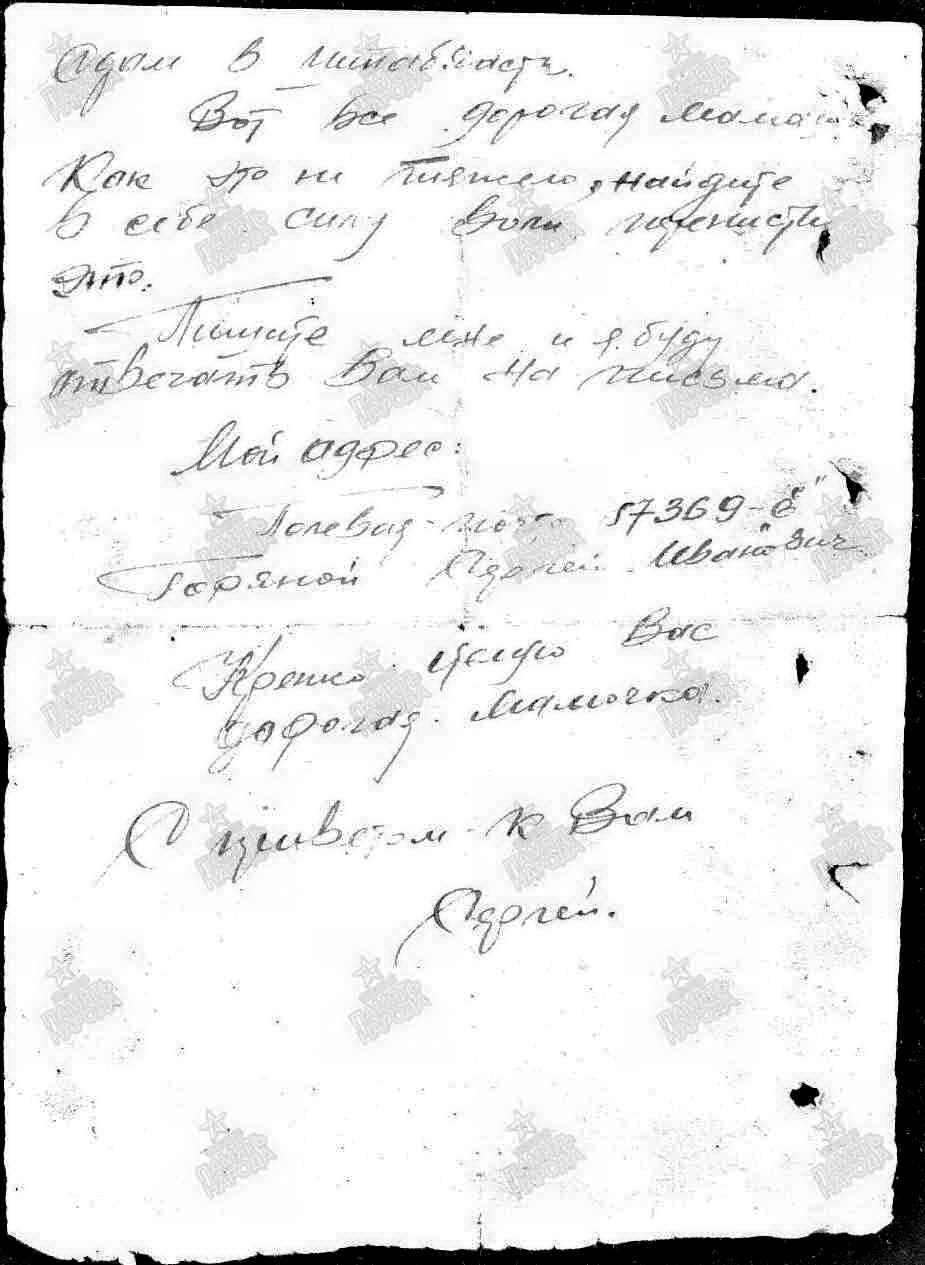 в
Вот все дорогая мамаша
Как это ни тяжело, найдите
в себе силу воли перенисти
это.
Пишите мне и я буду
отвечать Вам на письма.
Мой адрес:
Полевая почта 57369-"е"
Горяной Сергей Иванович
Крепко целую Вас
дорогая мамочка.
С приветом к Вам
Сергей.